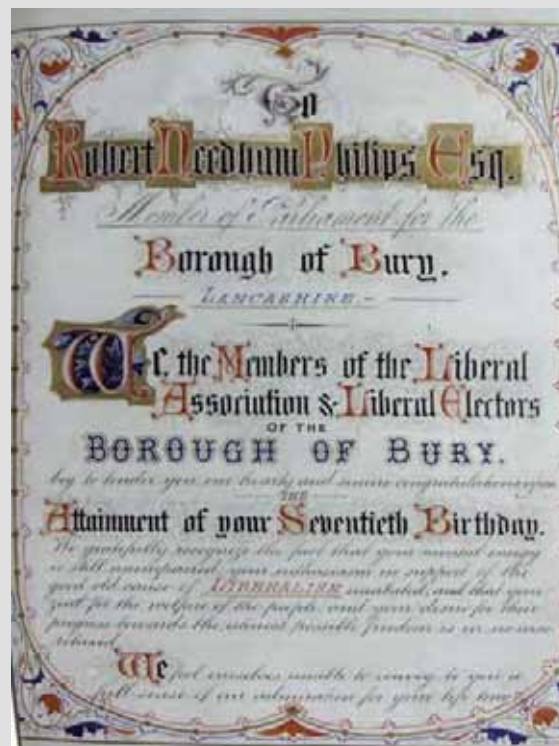 To
Robert Needham Philips Esq.
Member of Parliament for the
Borough of Bury.
LANCASHIRE.-
We, the Members of the Liberal
Association & Liberal Electors
OF THE
BOROUGH OF BURY.
beg to tender you our hearty and sincere congratulations upon
THE
Attainment of your Seventieth Birthday.
We gratefully recognize the fact that your mental energy
is still unimpaired, your enthusiasm in support of the
good old cause of LIBERALISM unabated, and that your
zeal for the welfare of the people and your desire for their
progress towards the utmost possible freedom is in no wise
We feel ourselves unable to convey to you a
full sense of our admiration for your life long